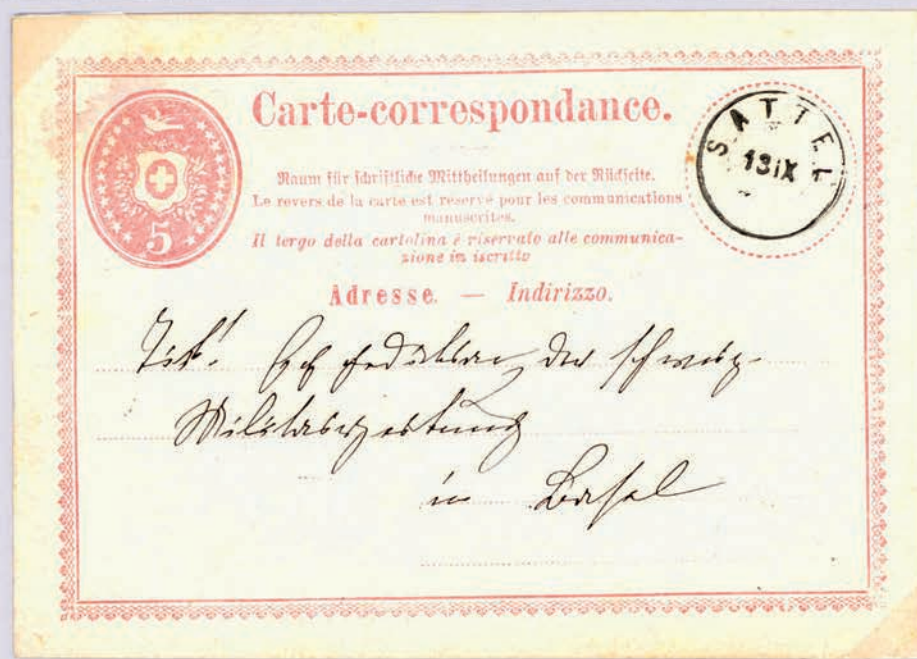 Carte-correspondance.
SATTEL
13 IX
5
Raum für schriftliche Mittheilungen auf der Rückseite.
Le revers de la carte est reservé pour les communications
manuscrites.
Il tergo della cartolina è riservato alle communica-
zione in iscritto
Adresse. — Indirizzo.
Tit! der schweiz.
Militärzeitung
in Basel